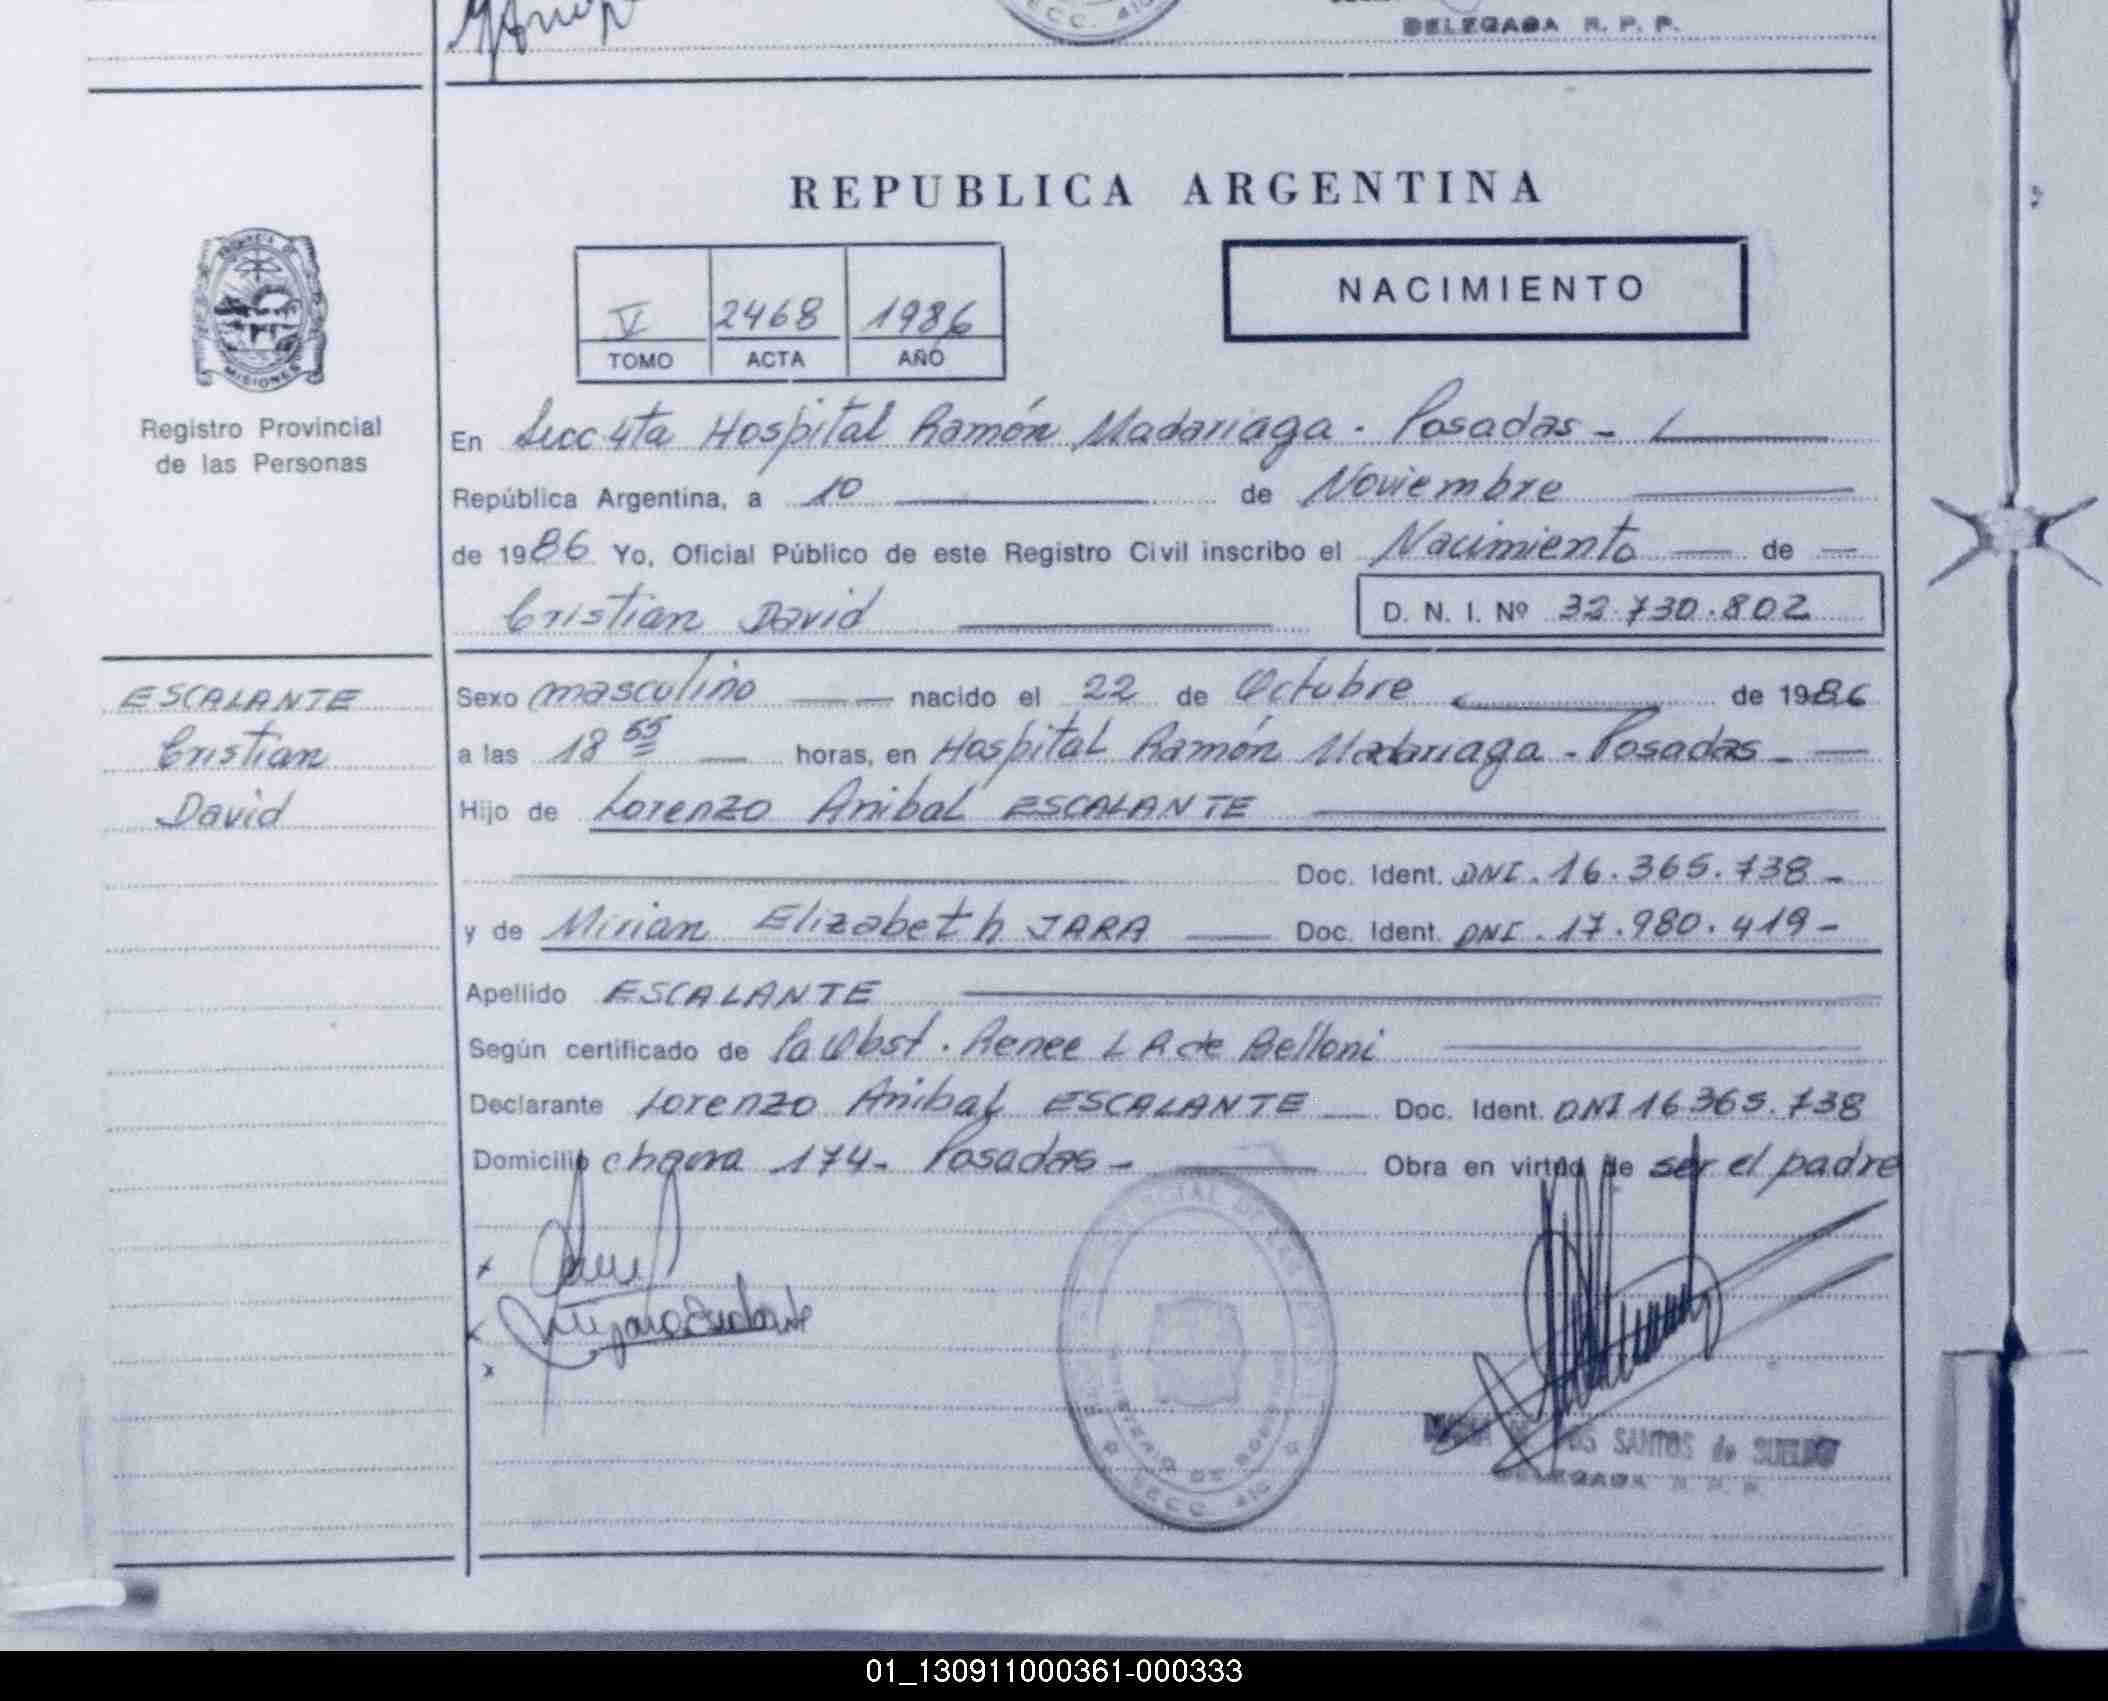 DELEGADA R. P. P.
REPUBLICA ARGENTINA
PROVINCIA DE
MISIONES
Registro Provincial
de las Personas
V 2468 1986
TOMO ACTA AÑO
NACIMIENTO
En Secc 4ta Hospital Ramón Madariaga - Posadas -
República Argentina, a 10 de Noviembre
de 1986 Yo, Oficial Público de este Registro Civil inscribo el Nacimiento de
Cristian David D. N. I. Nº 32.730.802
ESCALANTE
Cristian
David
Sexo masculino nacido el 22 de Octubre de 1986
a las 18 55 horas, en Hospital Ramón Madariaga - Posadas -
Hijo de Lorenzo Anibal ESCALANTE
Doc. Ident. DNI. 16.365.738 -
y de Mirian Elizabeth JARA Doc. Ident. DNI. 17.980.419 -
Apellido ESCALANTE
Según certificado de la Obst. Renee L R de Belloni
Declarante Lorenzo Anibal ESCALANTE Doc. Ident. DNI 16365.738
Domicilio chacra 174 - Posadas - Obra en virtud de ser el padre
MINISTERIO DE GOBIERNO
SECC. 410
DOS SANTOS de SUELDO
DELEGADA R. P. P.
01_130911000361-000333